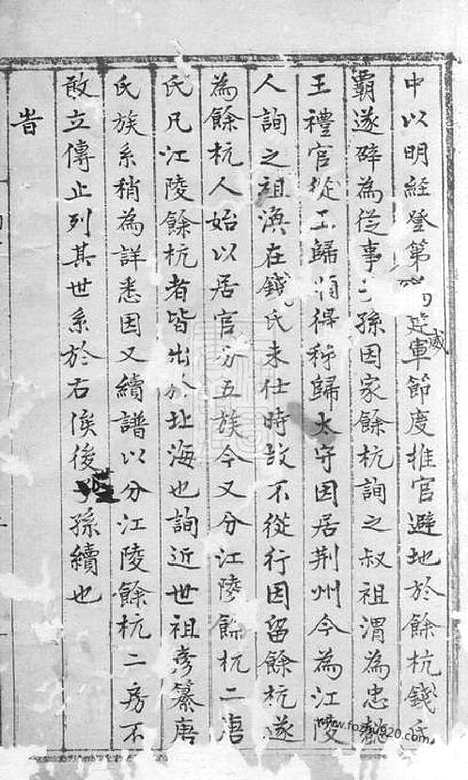 中以明經登第 建軍節度推官避地於餘杭錢氏
威
霸遂辟為從事 孫因家餘杭詢之叔祖渭為忠懿
王禮官從王歸 得秭歸太守因居荆州今為江陵
人詢之祖渙在錢氏未仕時故不從行因留餘杭遂
為餘杭人始以居官分五族今又分江陵餘杭二唐
氏凡江陵餘杭者皆出於北海也詢近世祖彥纂唐
氏族系稍為詳悉因又續譜以分江陵餘杭二房不
敢立傳止列其世系於右俟後 孫續也
旹